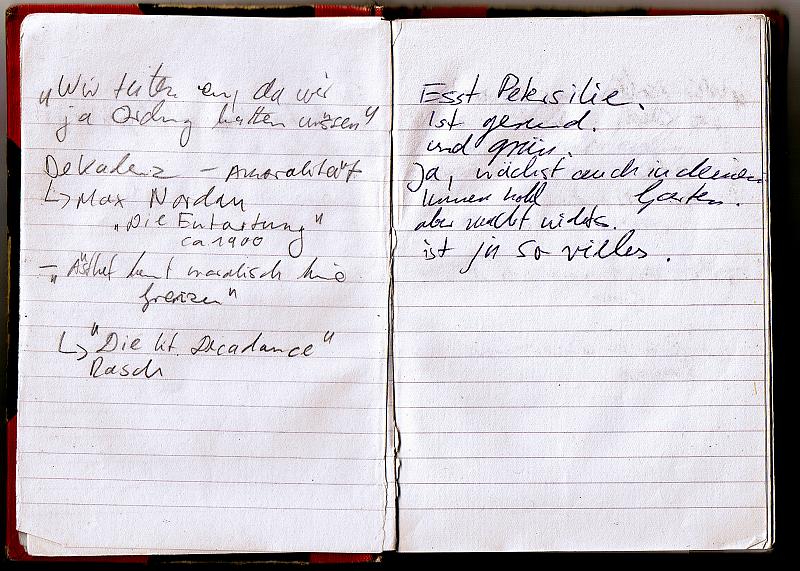 "Wir da wir
ja Ordnung hatten müssen"
Dekadenz - Amoralität
↳ Max Nordau
"Die Entartung"
ca 1900
- "Ästhet kennt moralisch keine
Grenzen"
↳ "Die lit. Decadance"
Rasch
Esst Petersilie.
Ist gesund.
und grün.
Ja, wächst auch in deinem
Garten.
aber macht nichts.
ist ja so vieles.